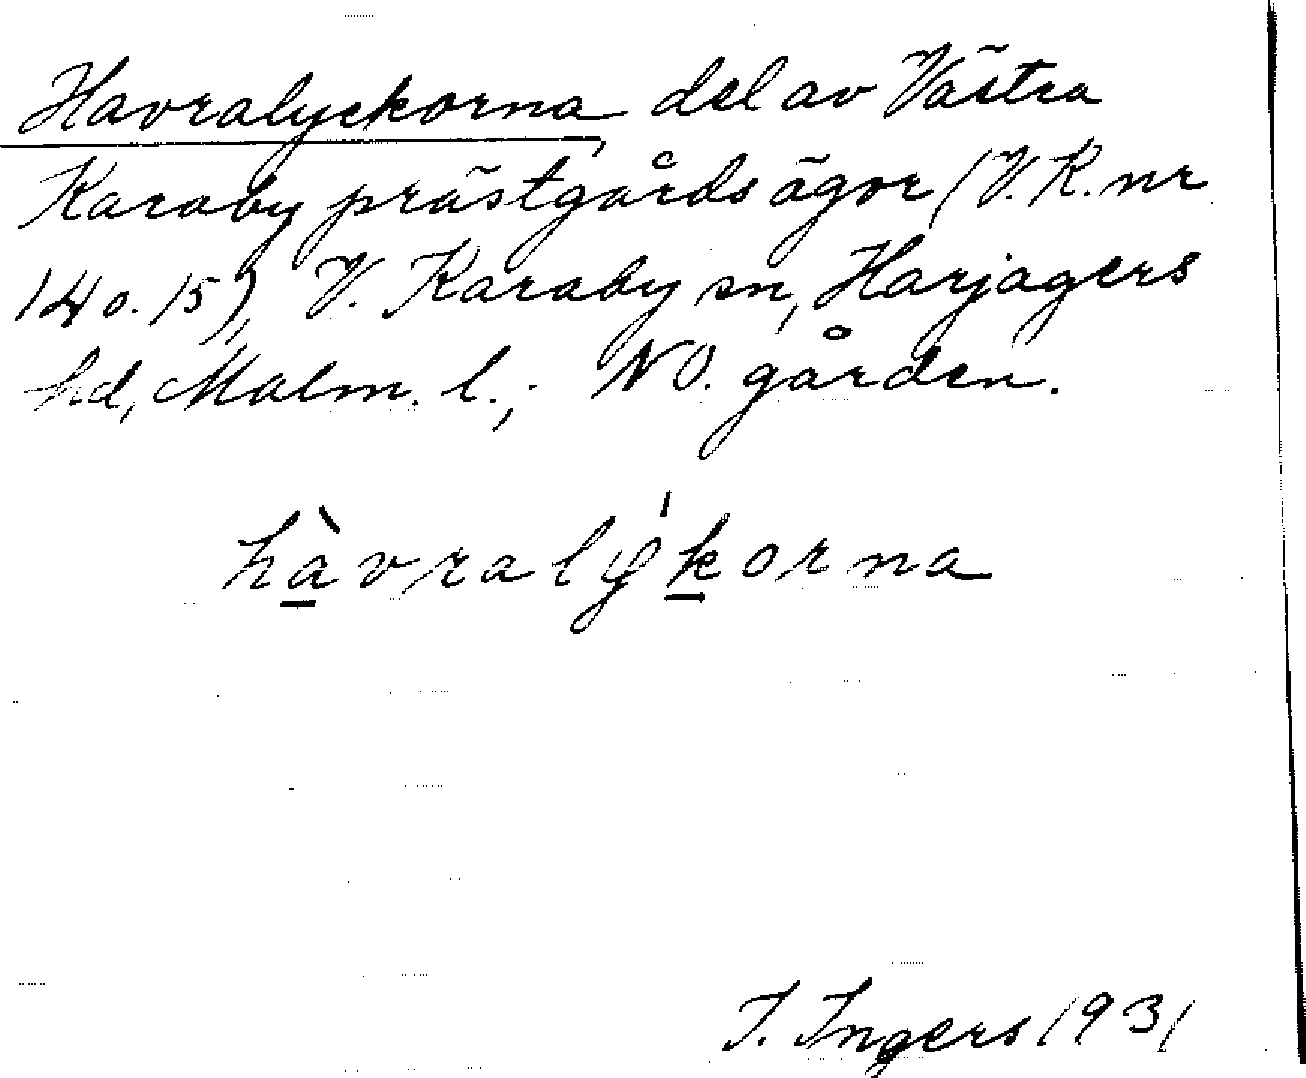 Havralyckorna, del av Västra
Karaby prästgårds ägor (V. K. nr
14 o. 15), V. Karaby sn, Harjagers
hd, Malm. l.; NO. gården.
hàvralýkorna
I. Ingers 1931